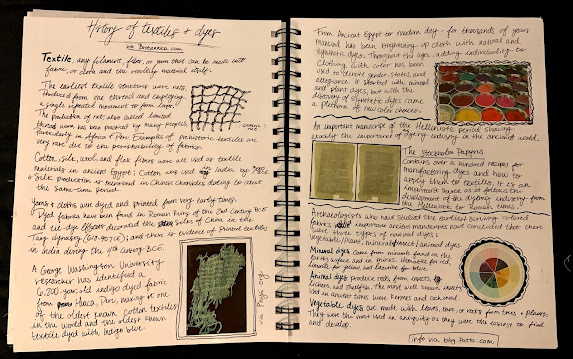 History of textiles + dyes
via Britannica.com
Textile, any filament, fiber, or yarn that can be made into
fabric, or cloth and the resulting material itself.
The earliest textile structures were nets,
Produced from one thread and employing
a single repeated movement to form loops.
The production of nets also called limited
thread work has been practiced by many peoples,
particularly in Africa + Peru. Examples of prehistoric textiles are
very rare due to the perishability of fabrics.
Cotton, silk, wool, and flax fibers were are used as textile
materials in ancient Egypt; Cotton was used in India by
Silk production is mentioned in Chinese chronicles dating to about
the same time period.
Yarns & cloths were dyed and printed from very early times.
Dyed fabrics have been found in Roman ruins of the 2nd century BCE
and tie-dye effects decorated the silks of China in the
Tang dynasty (618-907 CE); and there is evidence of printed textiles
in India during the 4th century BCE.
A George Washington University
researcher has identified a
6,200-year-old indigo dyed fabric
from Huaca, Peru, making it one
of the oldest known cotton textiles
in the world and the oldest known
textile dyed with indigo blue.
via Phys.org
From Ancient Egypt to modern day - for thousands of years
Mankind has been brightening up cloth with natural and
Synthetic dyes. Throughout the ages, adding individuality to
Clothing with color has been
used to denote gender, status, and
allegiance. It started with mineral
and plant dyes, but with the
discovery of synthetic dyes came
a plethora of new color choices.
An important manuscript of the Hellenistic period showing
clearly the importance of dyeing industry in the ancient world.
The Stockholm Papyrus
Contains over a hundred recipes for
manufacturing dyes and how to
apply them to textiles. It is an
important source as it follows the
development of the dyeing industry from
the Hellenistic to Roman times.
Archaeologists who have studied the earliest surviving colored
fabrics important ancient manuscripts have concluded that there
were three types of natural dyes:
Vegetable/plant, mineral/insect/animal dyes.
Mineral dyes came from minerals found on the
earth's surface and in mines.
for yellow, and azurite for blue.
Animal dyes produce reds from insects,
lichens, and shellfish. The most well known insects
used in ancient times were kermes and cochineal.
Vegetable dyes are made with leaves, bark, or roots from trees + plants.
They were the most used in antiquity as they were the easiest to find
and develop.
info via blog.Patra.com